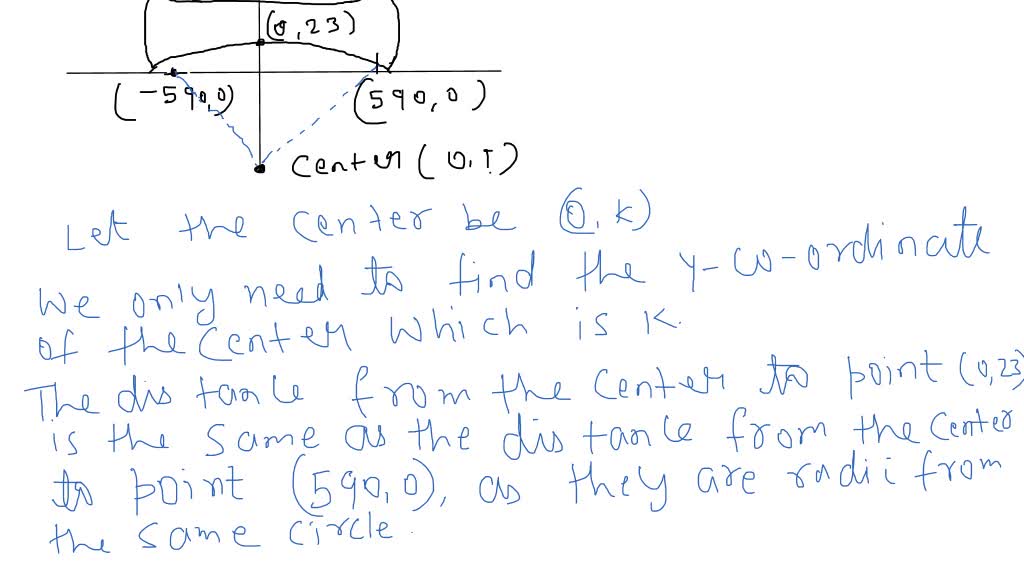 (0,23)
(-590,0) (590,0)
Center (0,?)
Let the center be (0,k)
We only need to find the y-co-ordinate
of the center which is k.
The distance from the center to point (0,23)
is the same as the distance from the center
to point (590,0), as they are radii from
the same circle.